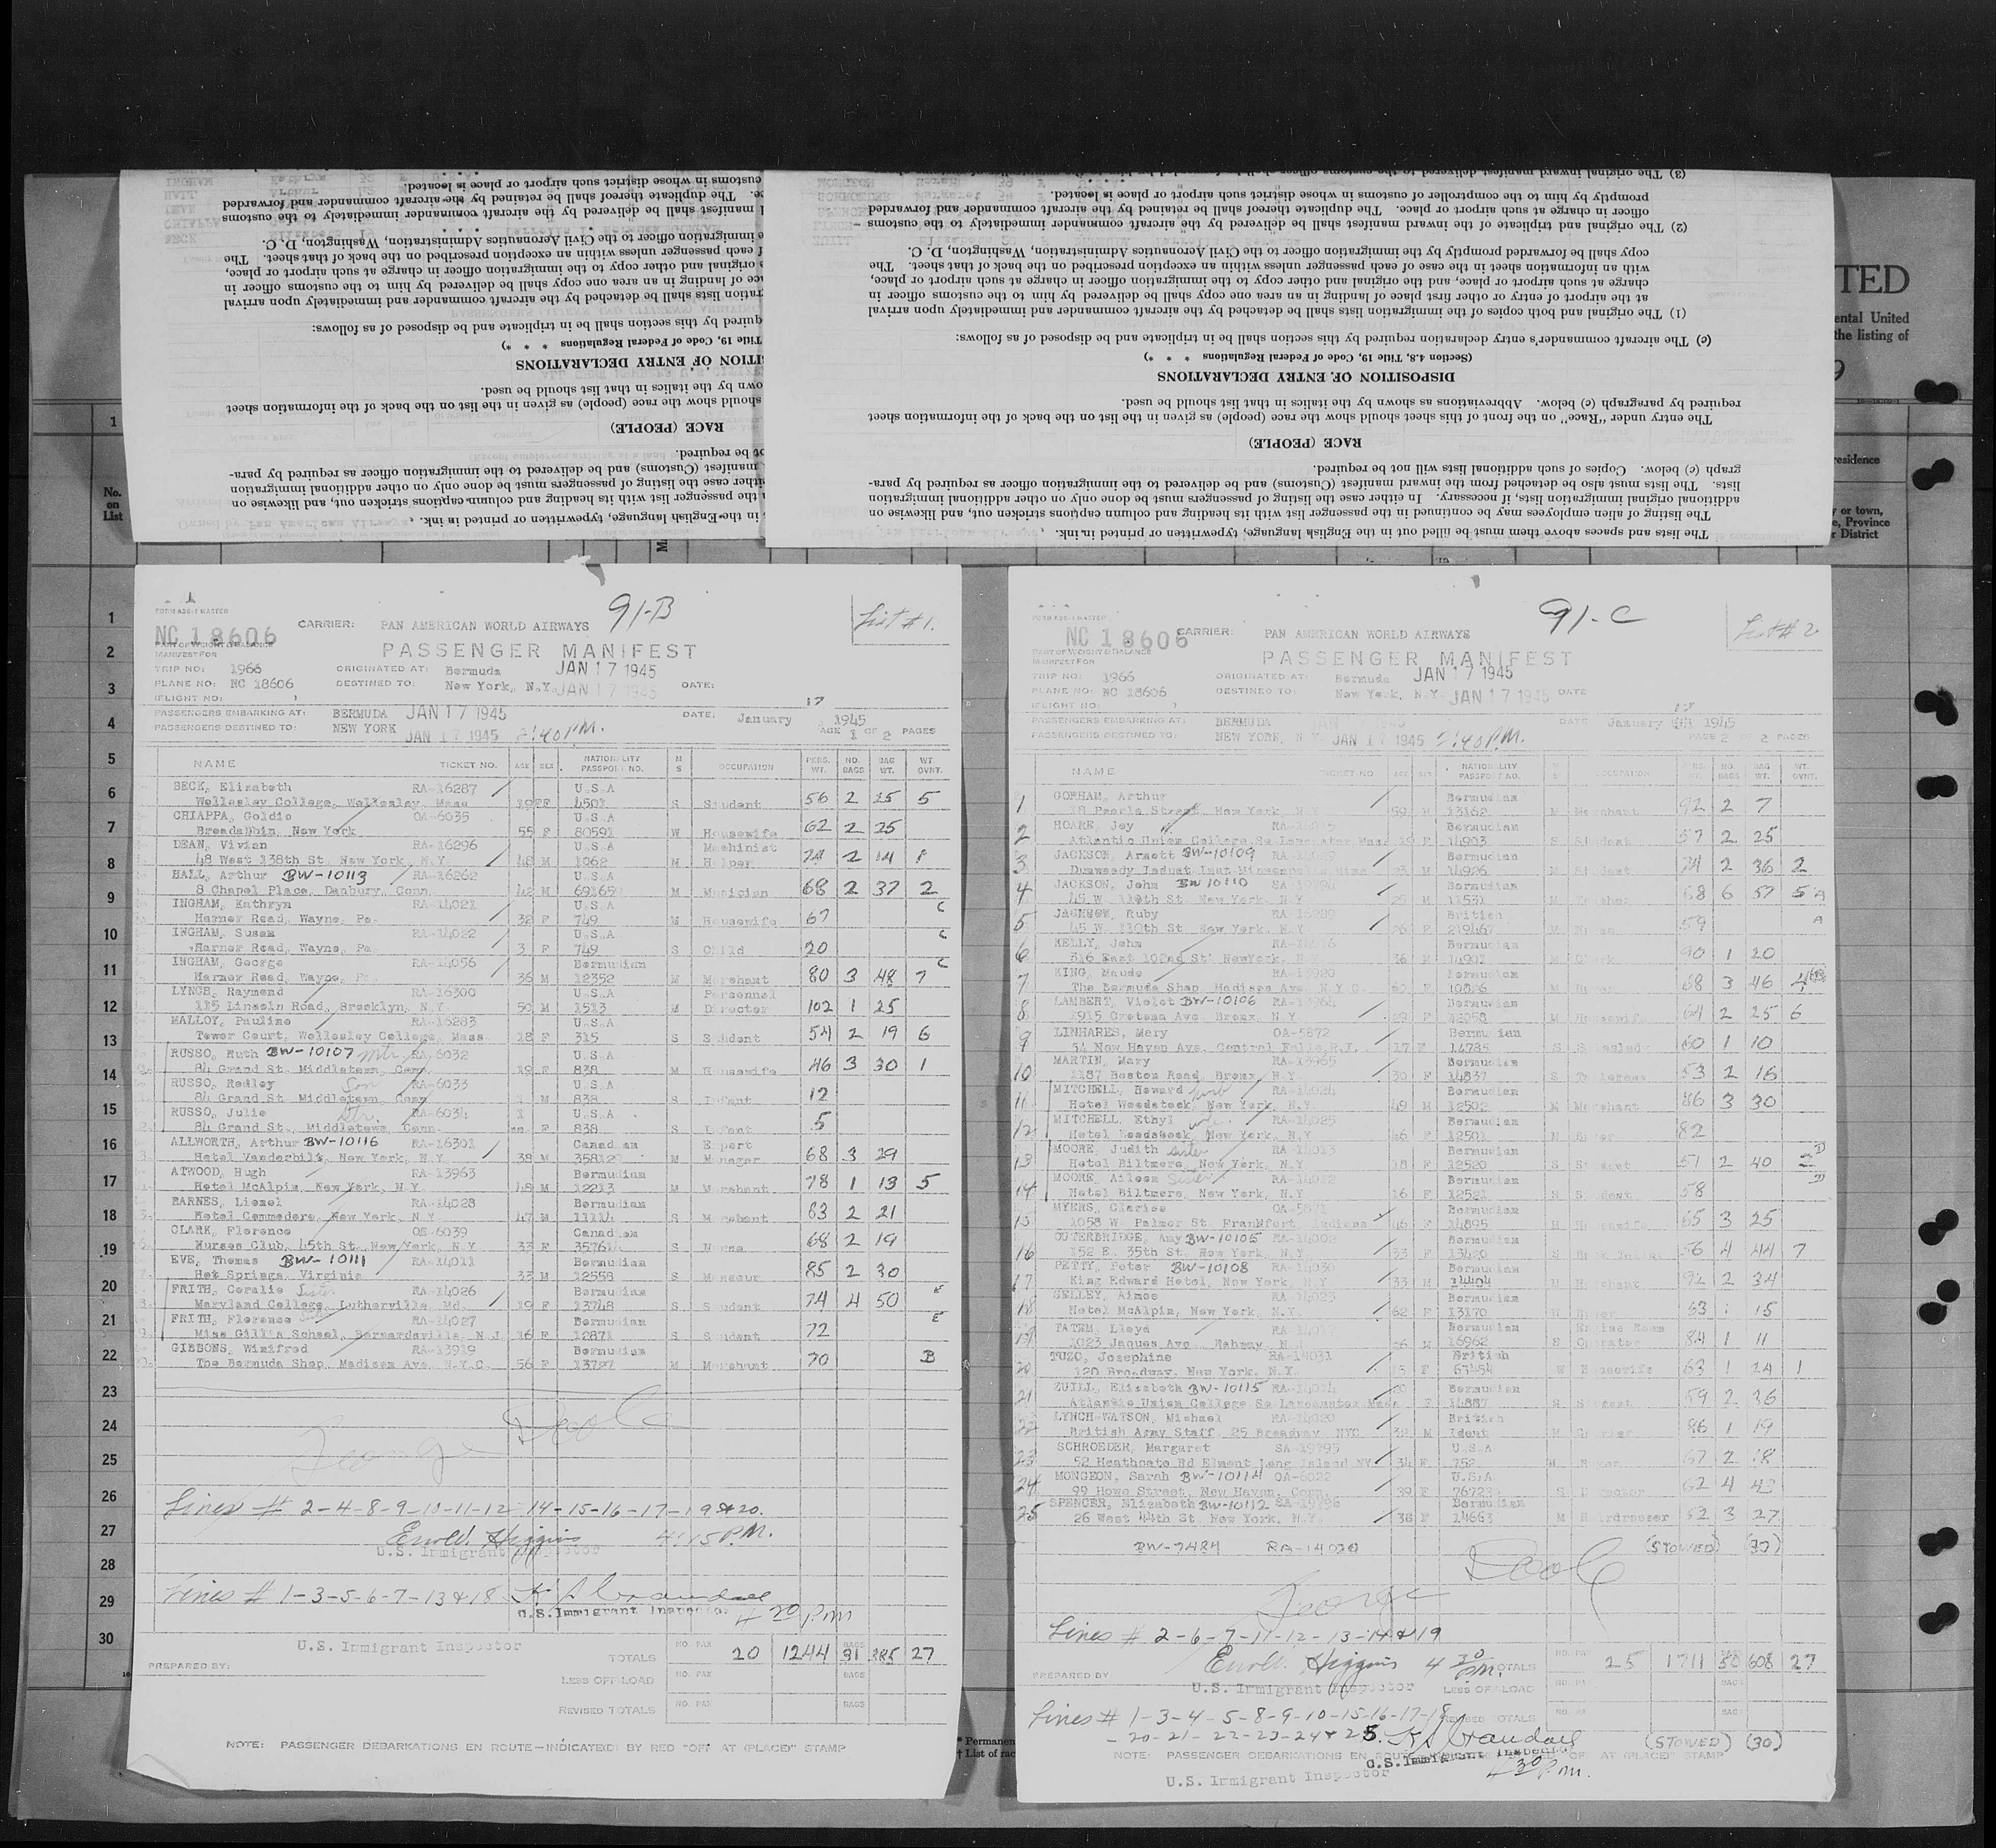 INGHAM Kathryn 32 F
HALL Arthur 42
DEAN
CHIAPPA
BECK Elizabeth 19
customs in whose district such airport or place is located.
ce. The duplicate thereof shall be retained by the aircraft commander and forwarded
l manifest shall be delivered by the aircraft commander immediately to the customs
e immigration officer to the Civil Aeronautics Administration, Washington, D. C.
f each passenger unless within an exception prescribed on the back of that sheet. The
original and other copy to the immigration officer in charge at such airport or place,
ce of landing in an area one copy shall be delivered by him to the customs officer in
ration lists shall be detached by the aircraft commander and immediately upon arrival
quired by this section shall be in triplicate and be disposed of as follows:
Title 19, Code of Federal Regulations * * *)
ITION OF ENTRY DECLARATIONS
own by the italics in that list should be used.
should show the race (people) as given in the list on the back of the information sheet
RACE (PEOPLE)
ot be required.
manifest (Customs) and be delivered to the immigration officer as required by para-
either case the listing of passengers must be done only on other additional immigration
the passenger list with its heading and column captions stricken out, and likewise on
in the English language, typewritten or printed in ink.
(3) The original inward manifest
promptly by him to the comptroller of customs in whose district such airport or place is located.
officer in charge at such airport or place. The duplicate thereof shall be retained by the aircraft commander and forwarded
(2) The original and triplicate of the inward manifest shall be delivered by the aircraft commander immediately to the customs
copy shall be forwarded promptly by the immigration officer to the Civil Aeronautics Administration, Washington, D. C.
with an information sheet in the case of each passenger unless within an exception prescribed on the back of that sheet. The
charge at such airport or place, and the original and other copy to the immigration officer in charge at such airport or place,
at the airport of entry or other first place of landing in an area one copy shall be delivered by him to the customs officer in
(1) The original and both copies of the immigration lists shall be detached by the aircraft commander and immediately upon arrival
(c) The aircraft commander's entry declaration required by this section shall be in triplicate and be disposed of as follows:
(Section 4.3, Title 19, Code of Federal Regulations * * *)
DISPOSITION OF ENTRY DECLARATIONS
required by paragraph (e) below. Abbreviations as shown by the italics in that list should be used.
The entry under "Race" on the front of this sheet should show the race (people) as given in the list on the back of the information sheet
RACE (PEOPLE)
graph (c) below. Copies of such additional lists will not be required.
lists. The lists must also be detached from the inward manifest (Customs) and be delivered to the immigration officer as required by para-
additional original immigration lists, if necessary. In either case the listing of passengers must be done only on other additional immigration
The listing of alien employees may be continued in the passenger list with its heading and column captions stricken out, and likewise on
The lists and spaces above them must be filled out in the English language, typewritten or printed in ink.
TED
ental United
the listing of
9
esidence
y or town,
e, Province
r District
1
No.
on
List
1
2
3
4
5
6
7
8
9
10
11
12
13
14
15
16
17
18
19
20
21
22
23
24
25
26
27
28
29
30
FORM ASE-1 MASTER
91-B
List #1.
NC 18606 CARRIER: PAN AMERICAN WORLD AIRWAYS
PART OF WEIGHT & BALANCE
MANIFEST FOR
PASSENGER MANIFEST
TRIP NO: 1966 ORIGINATED AT: Bermuda JAN 17 1945
PLANE NO: NC 18606 DESTINED TO: New York, N.Y. JAN 17 1945 DATE:
(FLIGHT NO: )
PASSENGERS EMBARKING AT: BERMUDA JAN 17 1945 DATE: January 17 1945
PASSENGERS DESTINED TO: NEW YORK JAN 17 1945 2:40 P.M. PAGE 1 OF 2 PAGES
NAME TICKET NO. AGE SEX NATIONALITY PASSPORT NO. M S OCCUPATION PERS. WT. NO. BAGS BAG WT. WT. OVNT.
BECK, Elizabeth RA-16287 U.S.A
Wellesley College, Wellesley, Mass 19 F 4501 S Student 56 2 25 5
CHIAPPA, Goldie OA-6035 U.S.A
Breadalbin, New York 55 F 80591 W Housewife 62 2 25
DEAN, Vivian RA-16296 U.S.A Machinist
48 West 138th St. New York, N.Y. 48 M 1062 M Helper 74 2 14 8
HALL, Arthur BW-10113 RA-16262 U.S.A
8 Chapel Place, Danbury, Conn. 42 M 69165 M Musician 68 2 37 2
INGHAM, Kathryn RA-14021 U.S.A C
Harner Road, Wayne, Pa. 32 F 749 M Housewife 67
INGHAM, Susan RA-14022 U.S.A C
Harner Road, Wayne, Pa 3 F 749 S Child 20
INGHAM, George RA-14056 Bermudian C
Harner Road, Wayne, Pa 36 M 12352 M Merchant 80 3 48 7
LYNCH, Raymond RA-16300 U.S.A Personnel
115 Lincoln Road, Brooklyn, N.Y. 50 M 1513 M Director 102 1 25
MALLOY, Pauline RA-16283 U.S.A
Tower Court, Wellesley College, Mass 18 F 315 S Student 54 2 19 6
RUSSO, Ruth BW-10107 Mth. RA-6032 U.S.A
84 Grand St. Middletown, Conn. 19 F 838 M Housewife 46 3 30 1
RUSSO, Redley Son RA-6033 U.S.A
84 Grand St. Middletown, Conn 1 M 838 S Infant 12
RUSSO, Julie Dtr. RA-6034 U.S.A
84 Grand St., Middletown, Conn. F 838 S Infant 5
ALLWORTH, Arthur BW-10116 RA-16301 Canadian Export
Hotel Vanderbilt, New York, N.Y. 38 M 35812 M Manager 68 3 29
ATWOOD, Hugh RA-13963 Bermudian
Hotel McAlpin, New York, N Y 48 M 12213 M Merchant 78 1 13 5
BARNES, Lionel RA-14028 Bermudian
Hotel Commodore, New York, N.Y 47 M 11114 S Merchant 83 2 21
CLARK, Florence OE-6039 Canadian
Nurses Club, 45th St. New York, N.Y 33 F 35761 S Nurse 68 2 19
EVE, Thomas BW-10111 RA-14011 Bermudian
Hot Springs, Virginia 33 M 12558 S Masseur 85 2 30
FRITH, Coralie Sister RA-14026 Bermudian E
Maryland College, Lutherville, Md. 19 F 13748 S Student 74 4 50
FRITH, Florence RA-14027 Bermudian E
Miss Gill's School, Bernardsville, N.J 16 F 12871 S Student 72
GIBBONS, Winifred RA-13919 Bermudian
The Bermuda Shop, Madison Ave. N.Y.C. 56 F 13727 M Merchant 70 B
George Poole
Lines # 2-4-8-9-10-11-12 14-15-16-17-19 & 20.
Errol. Higgins 4:15 P.M.
U.S. Immigrant
Lines # 1-3-5-6-7-13 & 18 K S Crandall
U.S. Immigrant Inspector 4 20 P.m
U.S. Immigrant Inspector
TOTALS NO. PAX 20 1244 BAGS 31 385 27
PREPARED BY:
LESS OFF-LOAD NO. PAX BAGS
REVISED TOTALS NO. PAX BAGS
NOTE: PASSENGER DEBARKATIONS EN ROUTE—INDICATED BY RED "OFF AT (PLACE)" STAMP
* Permanen
† List of rac
91-C
List # 2
NC 18606 CARRIER: PAN AMERICAN WORLD AIRWAYS
PART OF WEIGHT & BALANCE
MANIFEST FOR
PASSENGER MANIFEST
TRIP NO: 1966 ORIGINATED AT: Bermuda JAN 17 1945
PLANE NO: NC 18606 DESTINED TO: New York, N.Y. JAN 17 1945 DATE
(FLIGHT NO: )
PASSENGERS EMBARKING AT: BERMUDA JAN 17 1945 DATE January 17 1945
PASSENGERS DESTINED TO: NEW YORK, N.Y. JAN 17 1945 2:40 P.M. PAGE 2 OF 2 PAGES
NAME TICKET NO AGE SEX NATIONALITY PASSPORT NO. M S OCCUPATION PERS. WT. NO. BAGS BAG WT. WT. OVNT.
1 GORHAM, Arthur Bermudian
18 Pearle Street, New York N.Y 59 M 13162 M Merchant 92 2 7
2 HOARE, Joy Bermudian
Atlantic Union College So Lancaster Mass 19 F 14903 S Student 57 2 25
3 JACKSON, Arnett BW-10109 Bermudian
Dunwoody Indust Inst Minneapolis Minn 23 M 14926 M Student 74 2 36 2
4 JACKSON, John BW 10110 Bermudian
45 W. 110th St. New York, N.Y 25 M 11531 M Teacher 68 6 57 5 A
5 JACKSON, Ruby RA-16289 British A
45 W. 110th St New York, N.Y 26 F 219467 M Nurse 59
6 KELLY, John RA-14016 Bermudian
316 East 102nd St NewYork, N.Y 36 M 14907 M Clerk 90 1 20
7 KING, Maude Bermudian
The Bermuda Shop, Madison Ave. N.Y.C. F M Buyer 68 3 46 4
8 LAMBERT, Violet BW-10106 RA-13964 Bermudian
1915 Crotona Ave. Bronx, N.Y. 29 F 12058 M Housewife 64 2 25 6
9 LINHARES, Mary OA-5872 Bermudian
34 New Haven Ave. Central Falls, R.I. 17 F 14785 S Saleslady 60 1 10
10 MARTIN, Mary RA-13965 Bermudian
1187 Boston Road, Bronx, N.Y. 30 F 14837 S 53 2 16
11 MITCHELL, Howard husb RA-14024 Bermudian
Hotel Woodstock, New York, N.Y 49 M 12502 M Merchant 86 3 30
12 MITCHELL, Ethyl wife RA-14025 Bermudian
Hotel Woodstock, New York, N.Y 46 F 12501 M Buyer 82
13 MOORE, Judith sister RA-14013 Bermudian D
Hotel Biltmore, New York, N.Y 18 F 12520 S Student 51 2 40 2
14 MOORE, Aileen Sister RA-14012 Bermudian D
Hotel Biltmore, New York, N.Y 16 F 12521 S Student 58
15 MYERS, Clarice OA-5871 Bermudian
1058 W. Palmer St. Frankfort, Indiana 46 F 14895 M Housewife 65 3 25
16 OUTERBRIDGE, Amy BW-10105 RA-14002 Bermudian
152 E. 35th St. New York, N.Y. 33 F 13420 S 56 4 44 7
17 PETTY, Peter BW-10108 RA-14030 Bermudian
King Edward Hotel, New York, N.Y 33 M 14404 M Merchant 92 2 34
18 SELLEY, Aimee RA-14023 Bermudian
Hotel McAlpin, New York, N.Y. 62 F 13170 W Buyer 63 1 15
19 TATEM, Lloyd Bermudian Engine Room
1023 Jaques Ave. Rahway, N.J 26 M 16962 S Operator 84 1 11
20 TUZO, Josephine RA-14031 British
120 Broadway, New York, N.Y. F 63454 W Housewife 63 1 24 1
21 ZUILL, Elizabeth BW-10115 RA-14014 20 Bermudian
Atlantic Union College So Lancaster Mass F 14887 S Student 59 2 36
22 LYNCH-WATSON, Michael RA-14020 British
British Army Staff, 25 Broadway NYC M Ident M Courier 86 1 19
23 SCHROEDER, Margaret SA-19795 U.S.A
52 Heathcote Rd Elmont Long Island NY 34 F 752 M Buyer 67 2 18
24 MONGEON, Sarah BW-10114 OA-6022 U.S.A
99 Howe Street, New Haven, Conn. 39 F 76723 S Director 62 4 43
25 SPENCER, Elizabeth BW-10112 SA-19796 Bermudian
26 West 44th St. New York, N.Y. 38 F 14663 M Hairdresser 52 3 27
BW-7484 RA-14020 (STOWED) (30)
George Poole
Lines # 2-6-7-11-12-13-14 & 19
Errol. Higgins 4 30 P.M.
U.S. Immigrant Inspector
PREPARED BY:
TOTALS NO. PAX 25 1711 50 608 27
LESS OFF-LOAD NO. PAX BAGS
Lines # 1-3-4-5-8-9-10-15-16-17-18 REVISED TOTALS
-20-21-22-23-24 & 25. K S Crandall
(STOWED) (30)
NOTE: PASSENGER DEBARKATIONS EN ROUTE—INDICATED BY RED "OFF AT (PLACE)" STAMP
U.S. Immigrant Inspector
4 30 P.m.
U.S. Immigrant Inspector